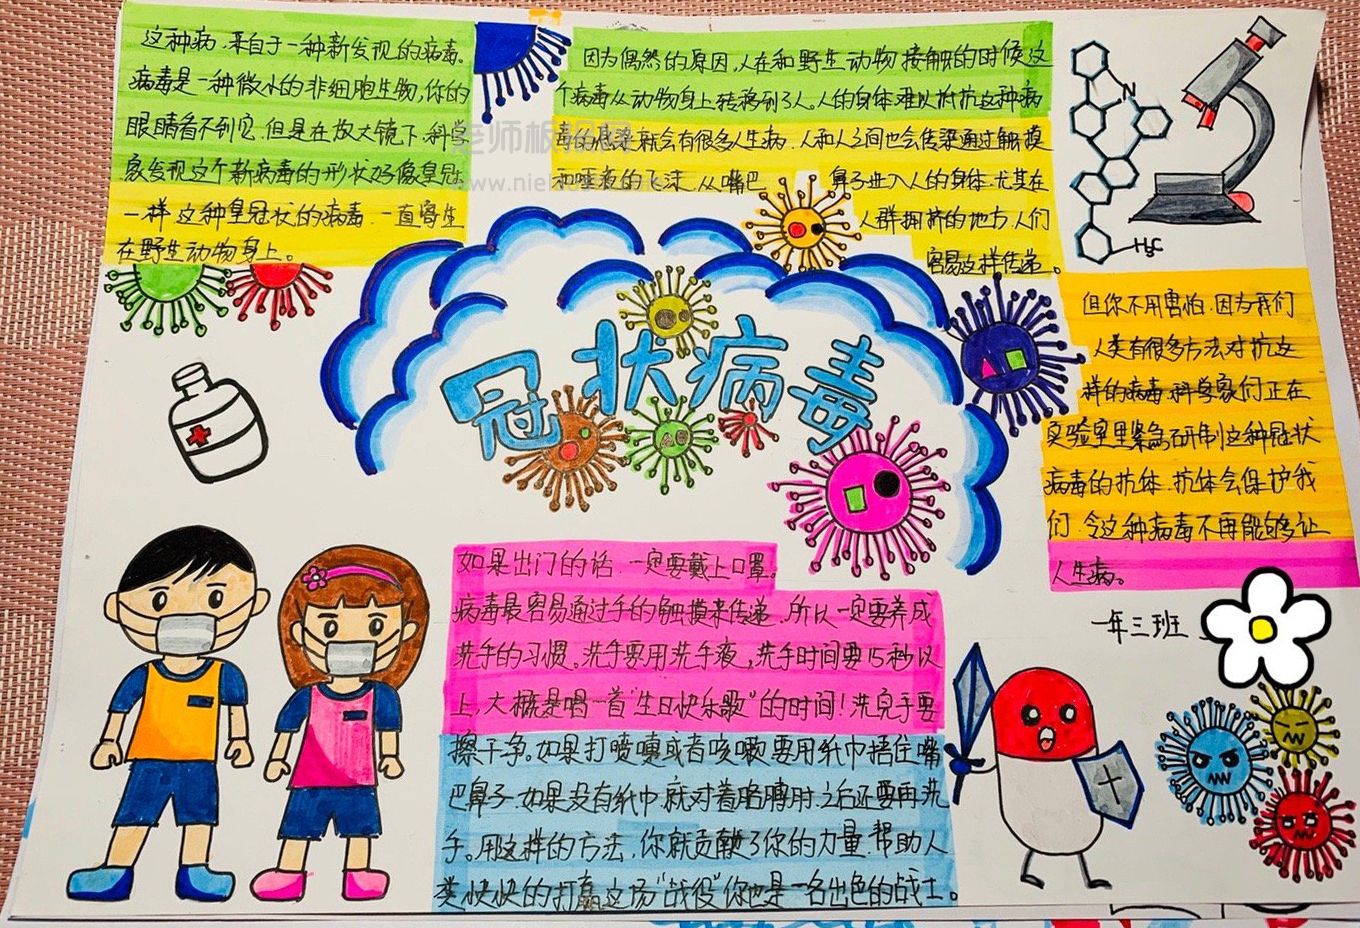 这种病，来自于一种新发现的病毒。
病毒是一种微小的非细胞生物，你的
眼睛看不到它，但是在放大镜下，科学
家发现这个新病毒的形状好像皇冠
一样，这种皇冠状的病毒，一直寄生
在野生动物身上。
因为偶然的原因，人在和野生动物接触的时候这
个病毒从动物身上转移到了人。人的身体难以抵抗这种病
就会有很多人生病，人和人之间也会传染通过触摸
和唾液的飞沫，从嘴巴 鼻子进入人的身体，尤其在
人群拥挤的地方，人们
容易这样传递。
N
H₃C
冠状病毒
但你不用害怕，因为我们
人类有很多方法对抗这
样的病毒，科学家们正在
实验室里紧急研制这种冠状
病毒的抗体，抗体会保护我
们，令这种病毒不再能够让
人生病。
一年三班
如果出门的话，一定要戴上口罩。
病毒最容易通过手的触摸来传递，所以一定要养成
洗手的习惯。洗手要用洗手液，洗手时间要15秒以
上，大概是唱一首“生日快乐歌”的时间！洗完手要
擦干净。如果打喷嚏或者咳嗽，要用纸巾捂住嘴
巴鼻子，如果没有纸巾，就对着胳膊肘，之后还要再洗
手。用这样的方法，你就贡献了你的力量，帮助人
类快快的打赢这场“战役”你也是一名出色的战士。